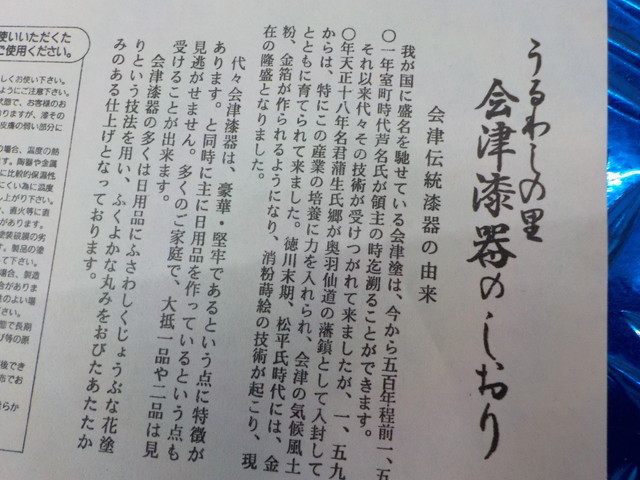 うるわしの里
会津漆器のしおり
会津伝統漆器の由来
我が国に盛名を馳せている会津塗は、今から五百年程前一、五
〇一年室町時代芦名氏が領主の時迄溯ることができます。
それ以来代々その技術が受けつがれて来ましたが、一、五九
〇年天正十八年名君蒲生氏郷が奥羽仙道の藩鎮として入封して
からは、特にこの産業の培養に力を入れられ、会津の気候風土
とともに育てられて来ました。徳川末期、松平氏時代には、金
粉、金箔が作られるようになり、消粉蒔絵の技術が起こり、現
在の隆盛となりました。
代々会津漆器は、豪華・堅牢であるという点に特徴が
あります。と同時に主に日用品を作っているという点も
見逃がせません。多くのご家庭で、大抵一品や二品は見
受けることが出来ます。
会津漆器の多くは日用品にふさわしくじょうぶな花塗
りという技法を用い、ふくよかな丸みをおびたあたたか
みのある仕上げとなっております。
使いいただくた
ご使用ください。
しくお使い下さい。
ようにご注意下さい。
状態で、お客様のお
ありますが、漆その
皮膚の弱い部分に
場合、温度の熱
す。陶器や金属
に比較的保温性
にくい為に温度
し上がり下さい。
、直火等に直
があります。
塗装破損の劣
す。製品の塗
て下さい。
場合、製造
合がありま
性のよい場
ださい。
態で長期
び等の原
後でき
市でお
らか